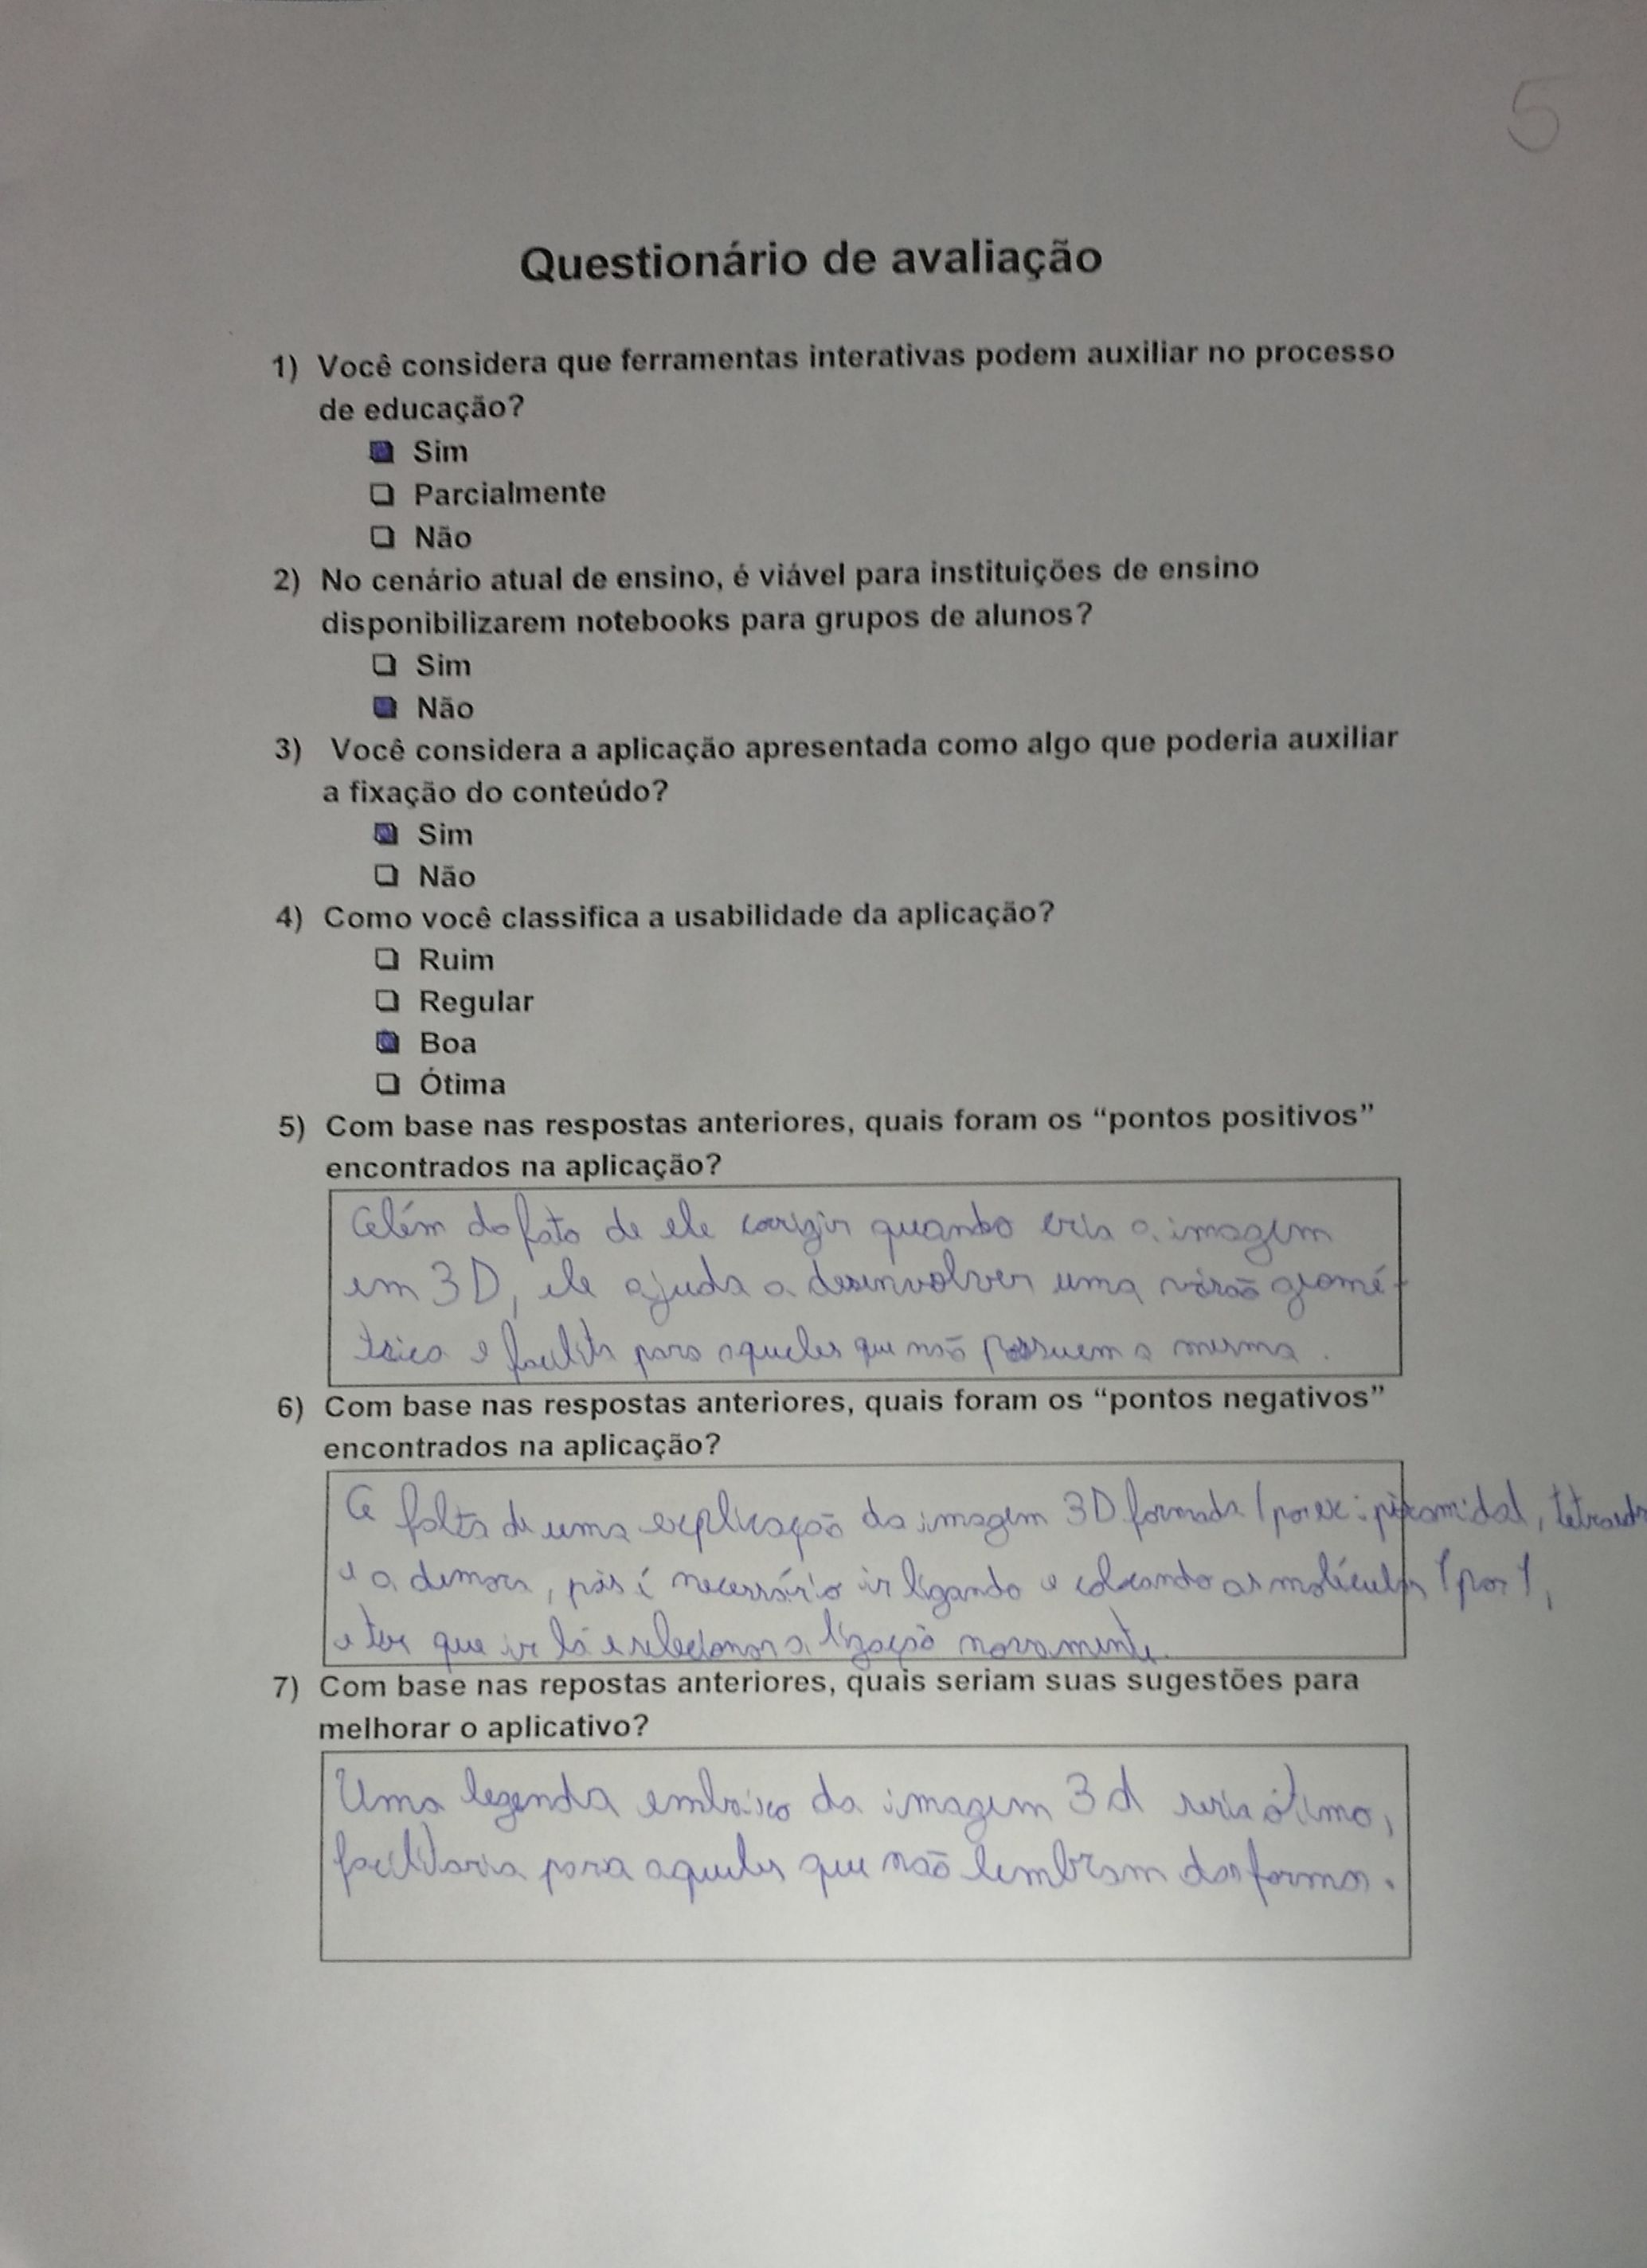 5
Questionário de avaliação
1) Você considera que ferramentas interativas podem auxiliar no processo
de educação?
Sim
Parcialmente
Não
2) No cenário atual de ensino, é viável para instituições de ensino
disponibilizarem notebooks para grupos de alunos?
Sim
Não
3) Você considera a aplicação apresentada como algo que poderia auxiliar
a fixação do conteúdo?
Sim
Não
4) Como você classifica a usabilidade da aplicação?
Ruim
Regular
Boa
Ótima
5) Com base nas respostas anteriores, quais foram os “pontos positivos”
encontrados na aplicação?
Além do fato de ele corrigir quando cria a imagem
em 3D, ele ajuda a desenvolver uma visão geomé-
trica e facilita para aqueles que não possuem a mesma.
6) Com base nas respostas anteriores, quais foram os “pontos negativos”
encontrados na aplicação?
A falta de uma explicação da imagem 3D formada (por ex: piramidal,
e a demora, pois é necessário ir ligando e colocando as moléculas 1 por 1,
e ter que ir lá e selecionar a ligação novamente.
7) Com base nas repostas anteriores, quais seriam suas sugestões para
melhorar o aplicativo?
Uma legenda embaixo da imagem 3d seria ótimo,
facilitaria para aqueles que não lembram das formas.